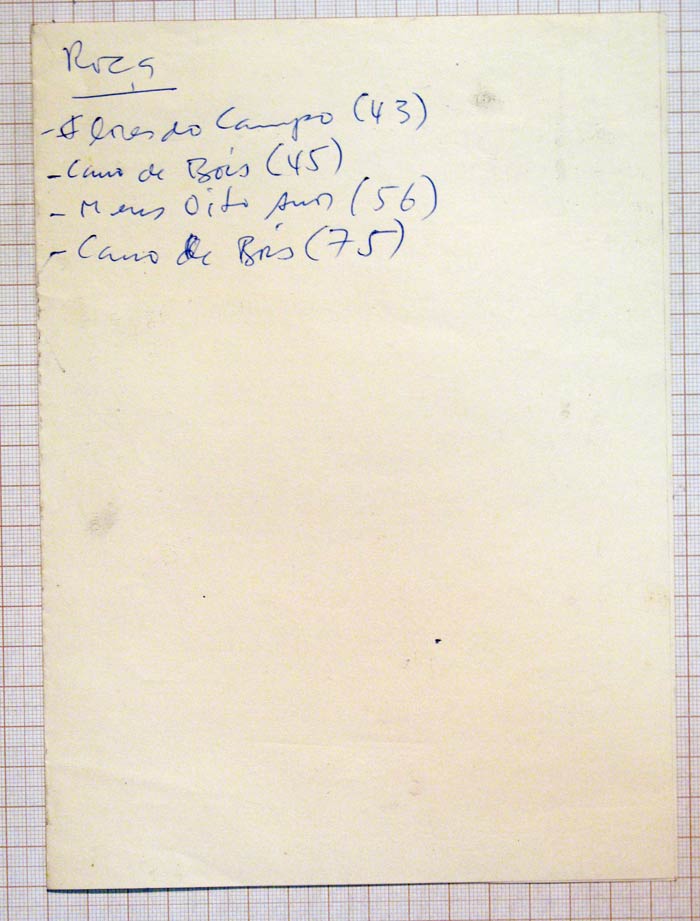 Roça
- Flores do Campo (43)
- Carro de Bois (45)
- Meus Oito Anos (56)
- Carro de Bois (75)